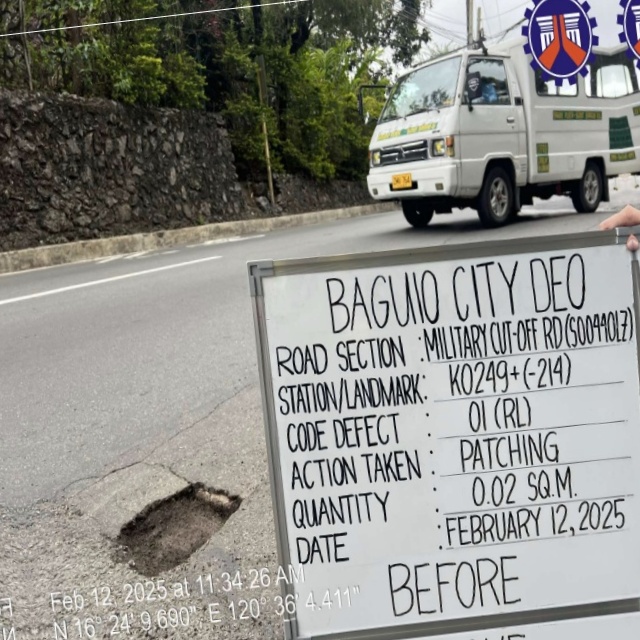 BAGUIO CITY DEO
ROAD SECTION : MILITARY CUT-OFF RD (S00449LZ)
STATION/LANDMARK : K0249+(-214)
CODE DEFECT : 01 (RL)
ACTION TAKEN : PATCHING
QUANTITY : 0.02 SQ.M.
DATE : FEBRUARY 12, 2025
BEFORE
Feb 12, 2025 at 11:34:26 AM
N 16° 24' 9.690" E 120° 36' 4.411"